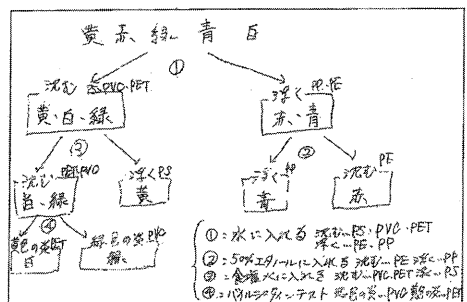 黄 赤 緑 青 白
①
沈む PS・PVC・PET
浮く PP・PE
黄・白・緑
赤・青
③
②
沈む PET・PVC
浮く PS
浮く PP
沈む PE
白・緑
黄
青
赤
④
黄色の炎 PET
緑色の炎 PVC
白
緑
①:水に入れる 沈む…PS・PVC・PET
浮く…PE・PP
②:50%エタノールに入れる 沈む…PE 浮く…PP
③:食塩水に入れる 沈む…PVC・PET 浮く…PS
④:バイルシュタインテスト 緑色の炎…PVC 黄色の炎…PET